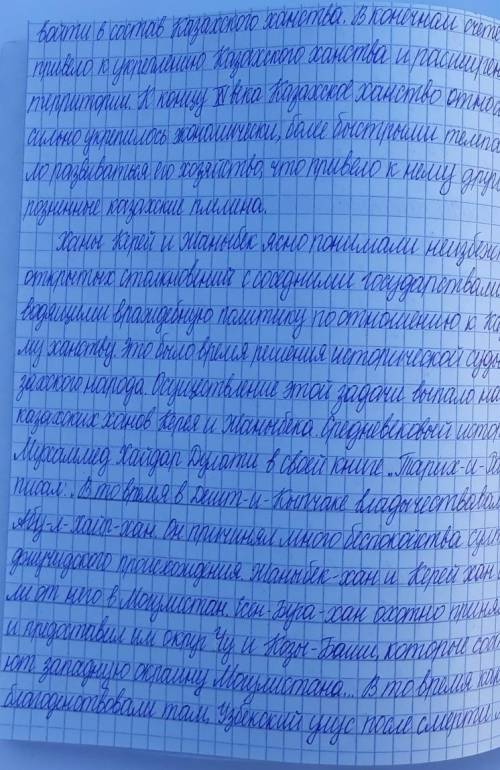 войти в состав Казахского ханства. В конечном счете
привело к укреплению Казахского ханства и расширен
территории. К концу XV века Казахское ханство отно
сильно укрепилось экономически, более быстрыми темпа
ло развиваться его хозяйство, что привело к нему друг
розненные казахские племена.
Ханы Керей и Жаныбек ясно понимали неизбеж
открытых столкновений с соседними государствами
водящими враждебную политику по отношению к Ка
му ханству. Это было время решения исторической судь
захского народа. Осуществление этой задачи выпало на
казахских ханов Керея и Жаныбека. Средневековый исто
Мухаммед Хайдар Дулати в своей книге „Тарих-и-
писал: „В то время в Дешт-и-Кыпчаке владычествова
Абу-л-Хайр-хан. Он причинял много беспокойства сул
джучидского происхождения. Жаныбек-хан и Керей хан
ли от него в Могулистан. Есен-Буга-хан охотно приня
и предоставил им округ Чу и Козы-Баши, которые сост
ют западную окраину Могулистана... В то время как
благоденствовали там, Узбекский улус после смерти